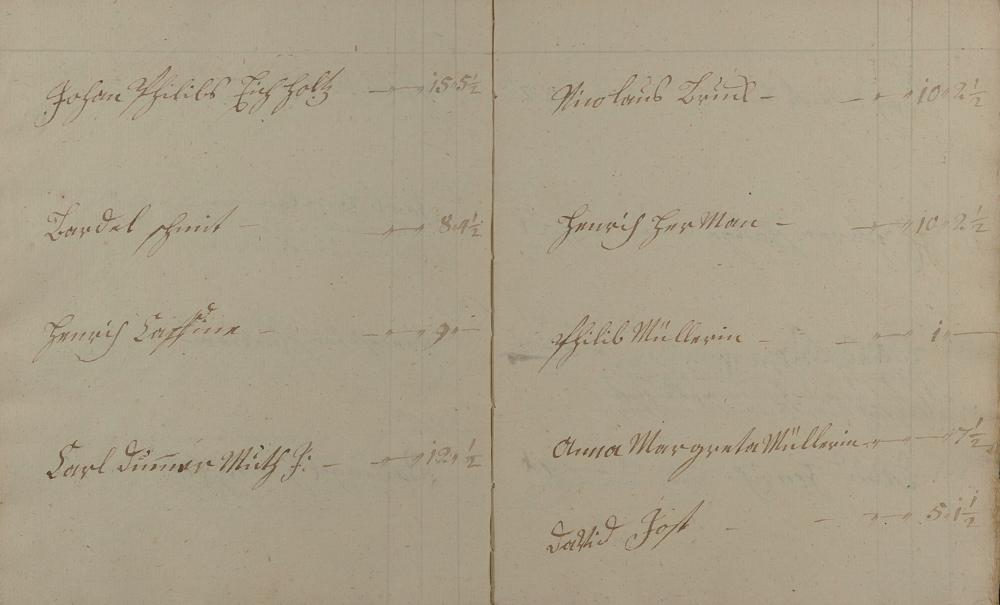 Johan Philibs Eich holtz — " — " 15 " 5½
Bardel schmit — — " — " 8 " 4½
Henrich — — " — " 9 " —
Carl Dümmer Muth J: — — " — " 12 " ½
Nicolaus — — " — " 10 " 2½
Henrich HerMan — — " — " 10 " 2½
Philib Müllerin — — " — " 1 " —
Anna Margreta Müllerin — " — " — " 7½
David Jost — — " — " 5 " 1½